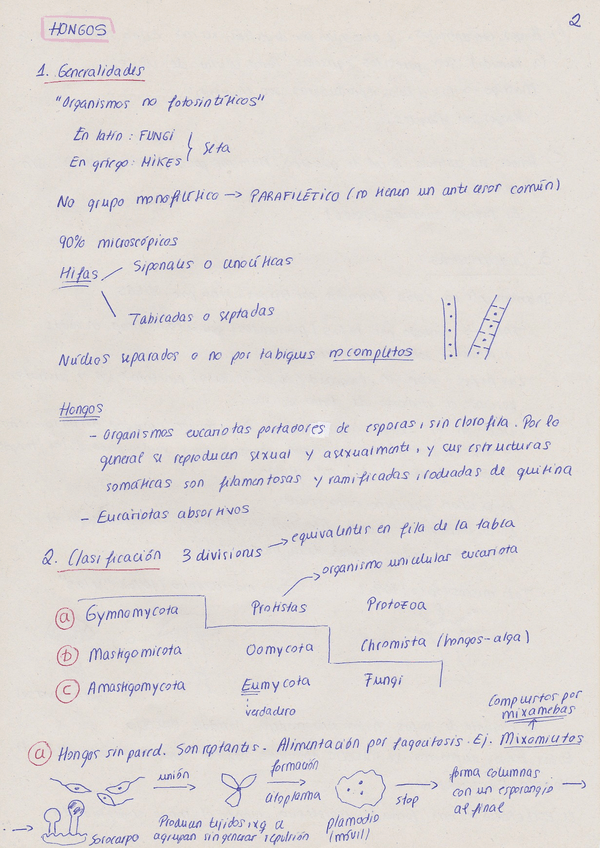 2
HONGOS
1. Generalidades
"Organismos no fotosintéticos"
En latín: FUNGI
En griego: MIKES
Seta
No grupo monofilético → PARAFILÉTICO (no tienen un antecesor común)
90% microscópicos
Hifas
Sifonales o cenocíticas
Tabicadas o septadas
Núcleos separados o no por tabiques incompletos
Hongos
- Organismos eucariotas portadores de esporas, sin clorofila. Por lo
general se reproducen sexual y asexualmente, y sus estructuras
somáticas son filamentosas y ramificadas, rodeadas de quitina
- Eucariotas absortivos
2. Clasificación 3 divisiones → equivalentes en fila de la tabla
→ organismo unicelular eucariota
a Gymnomycota Protistas Protozoa
b Mastigomicota Oomycota Chromista (hongos-alga)
c Amastigomycota Eumycota Fungi
verdadero
Compuestos por
mixamebas
a Hongos sin pared. Son reptantes. Alimentación por fagocitosis. Ej. Mixomicetos
unión
formación
citoplasma
plasmodio
(móvil)
stop
forma columnas
con un esporangio
al final
Sorocarpo
Producen tejidos xq a
agrupan sin generar repulsión